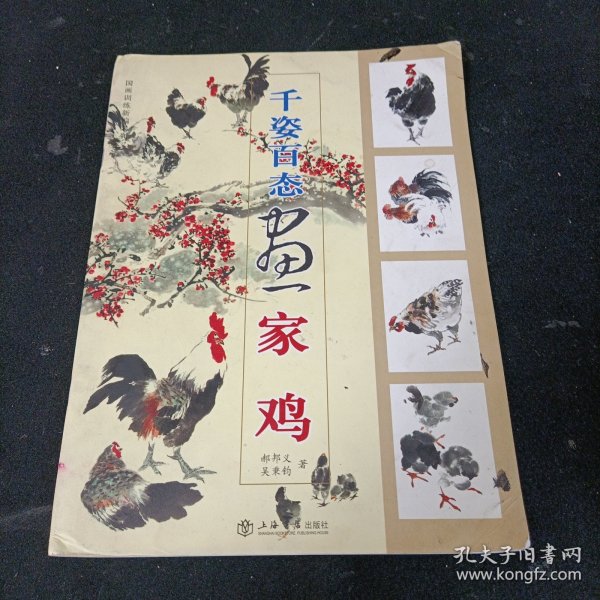 国画训练新
千姿百态
画
家鸡
郝邦义
吴秉钧
著
上海书店出版社
SHANGHAI BOOKSTORE PUBLISHING HOUSE
孔夫子旧書网
www.kongfz.com